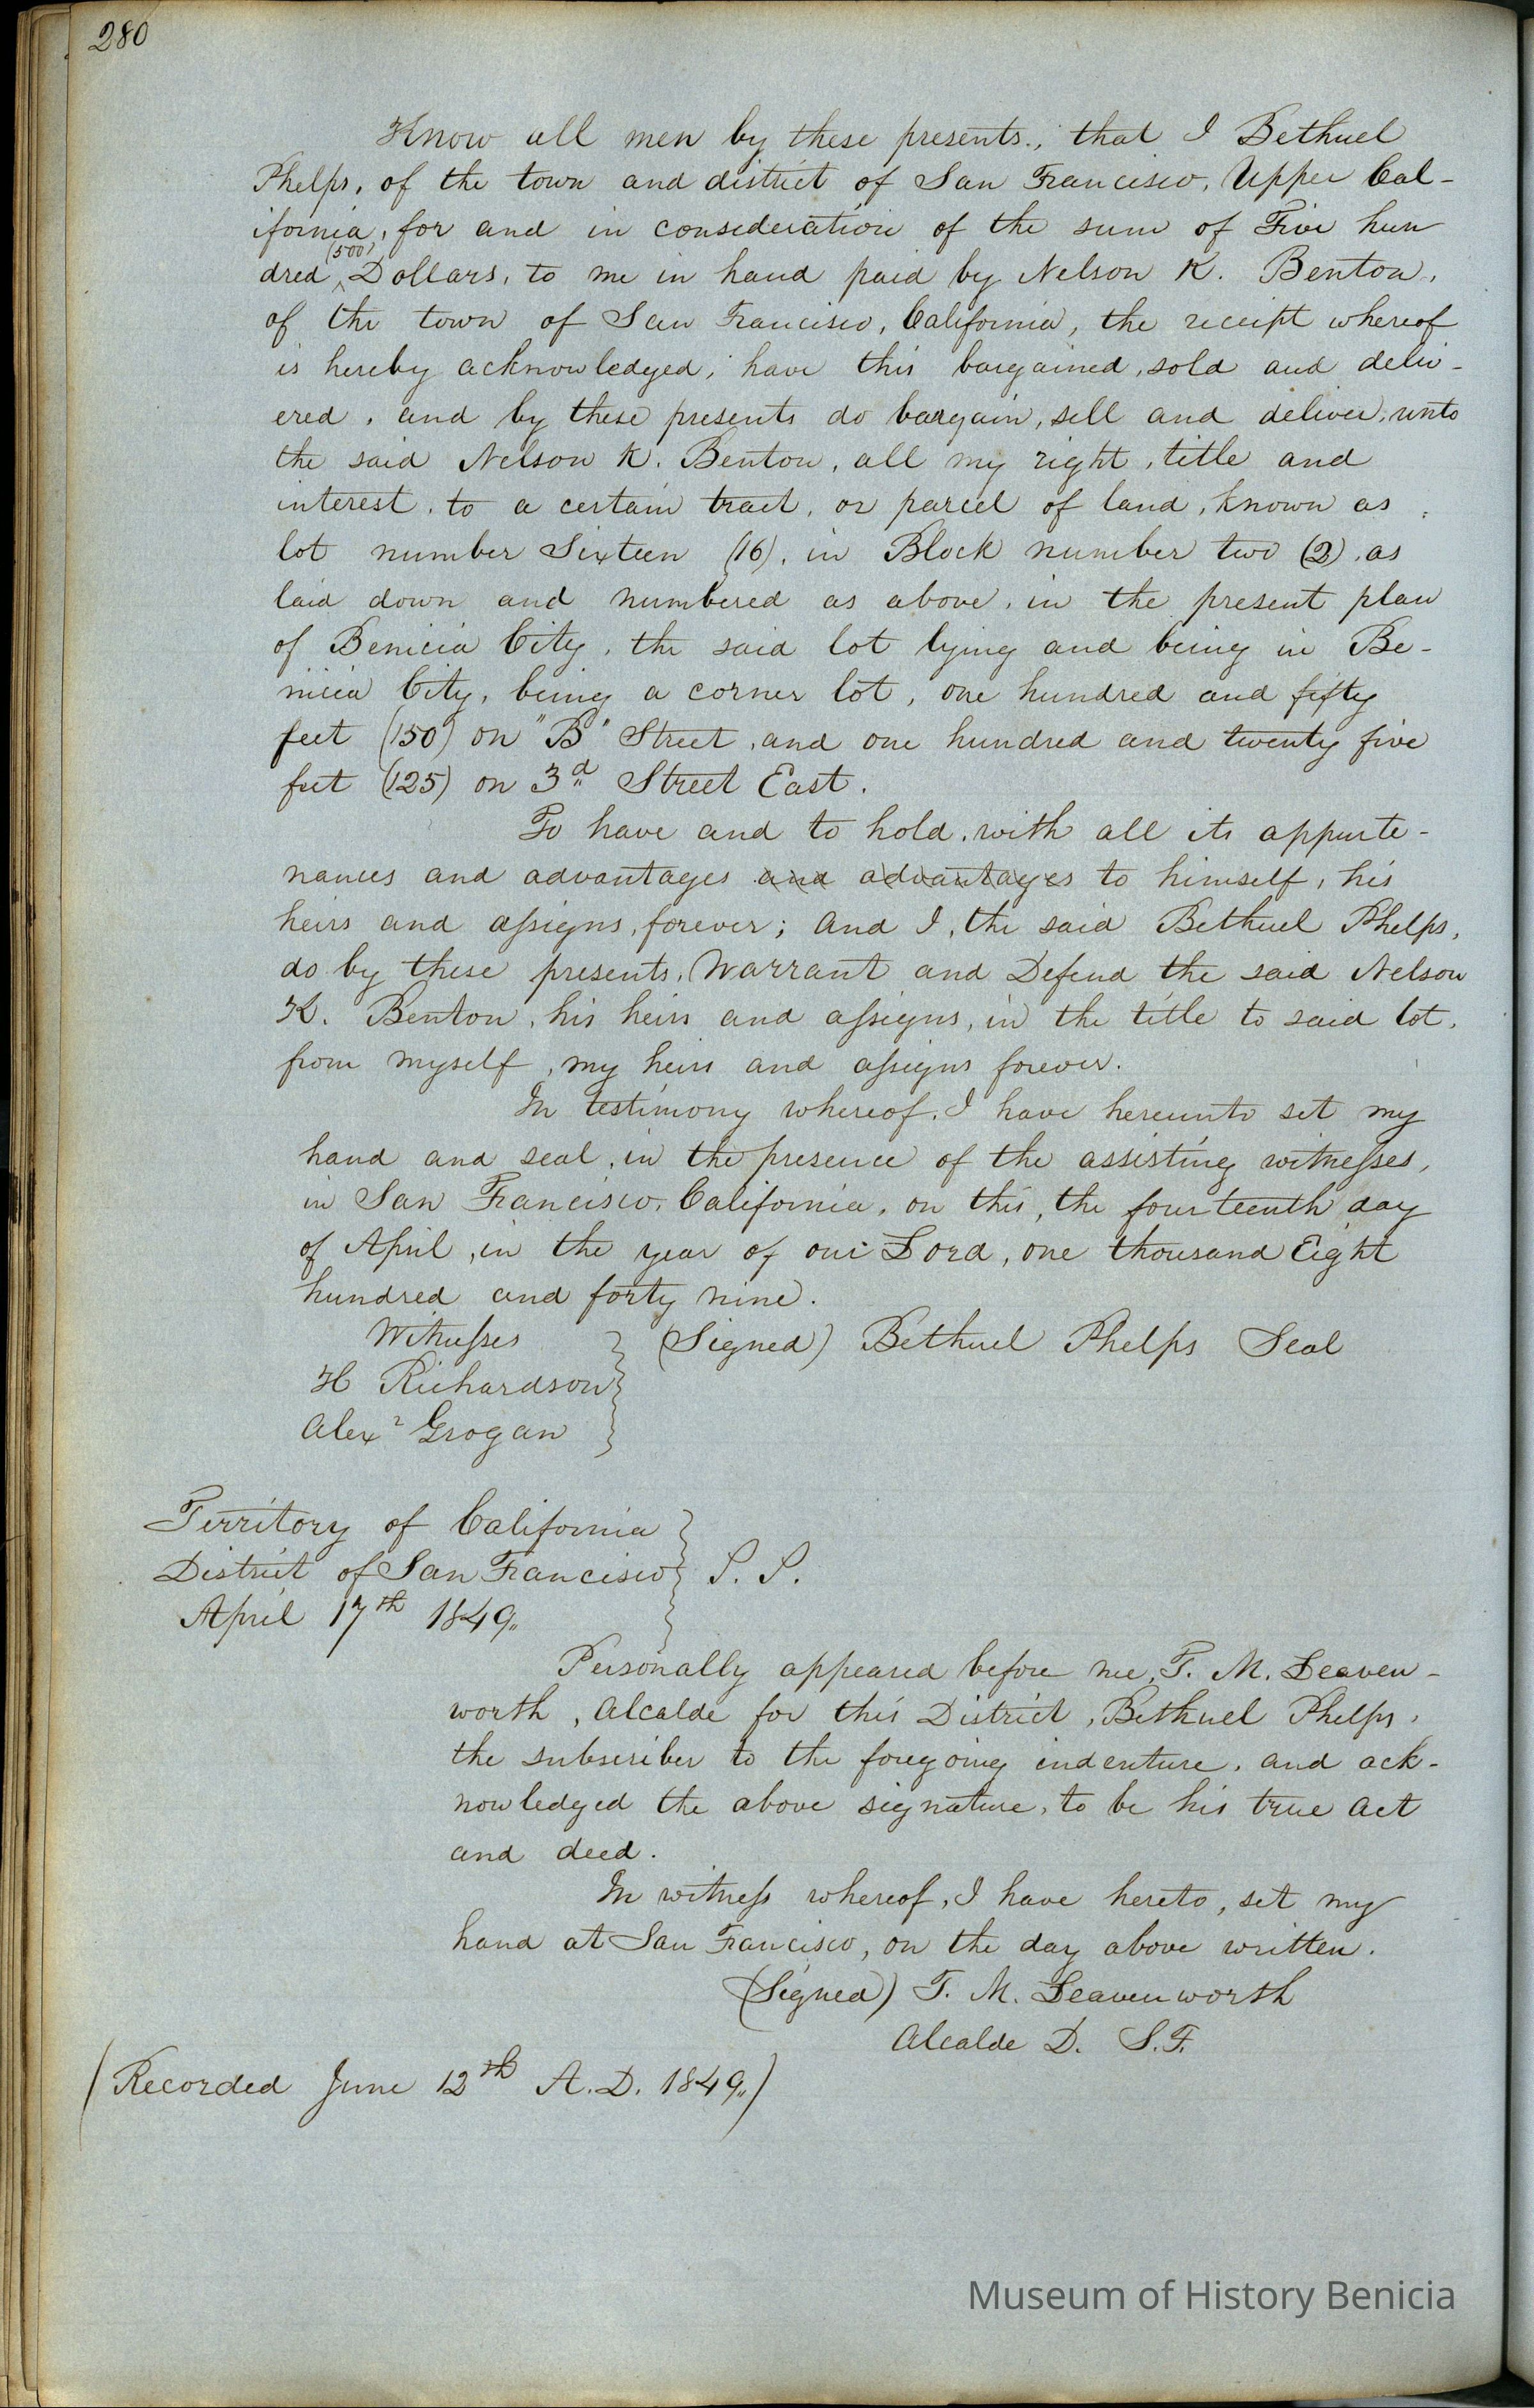 280
Know all men by these presents., that I Bethuel
Phelps, of the town and district of San Francisco, Upper Cal-
ifornia, for and in consideration of the sum of Five hun
dred (500) Dollars, to me in hand paid by Nelson K. Benton,
of the town of San Francisco, California, the receipt whereof
is hereby acknowledged, have this bargained, sold and deliv-
ered, and by these presents do bargain, sell and deliver, unto
the said Nelson K. Benton, all my right, title and
interest, to a certain tract, or parcel of land, known as
lot number Sixteen (16), in Block number two (2), as
laid down and numbered as above, in the present plan
of Benicia City, the said lot lying and being in Be-
nicia City, being a corner lot, one hundred and fifty
feet (150) on "B" Street, and one hundred and twenty five
feet (125) on 3d Street East.
To have and to hold, with all its appurte-
nances and advantages and advantages to himself, his
heirs and assigns, forever; and I, the said Bethuel Phelps,
do by these presents, Warrant and Defend the said Nelson
K. Benton, his heirs and assigns, in the title to said lot,
from myself, my heirs and assigns forever.
In testimony whereof, I have hereunto set my
hand and seal, in the presence of the assisting witnesses,
in San Francisco, California, on this, the fourteenth day
of April, in the year of our Lord, one thousand Eight
hundred and forty nine.
Witnesses (Signed) Bethuel Phelps Seal
H Richardson
Alexr Grogan
Territory of California
District of San Francisco S. S.
April 17th 1849"
Personally appeared before me, T. M. Leaven-
worth, Alcalde for this District, Bethuel Phelps,
the subscriber to the foregoing indenture, and ack-
nowledged the above signature, to be his true act
and deed.
In witness whereof, I have hereto, set my
hand at San Francisco, on the day above written.
(Signed) T. M. Leavenworth
Alcalde D. S. F.
(Recorded June 12th A.D. 1849")
Museum of History Benicia